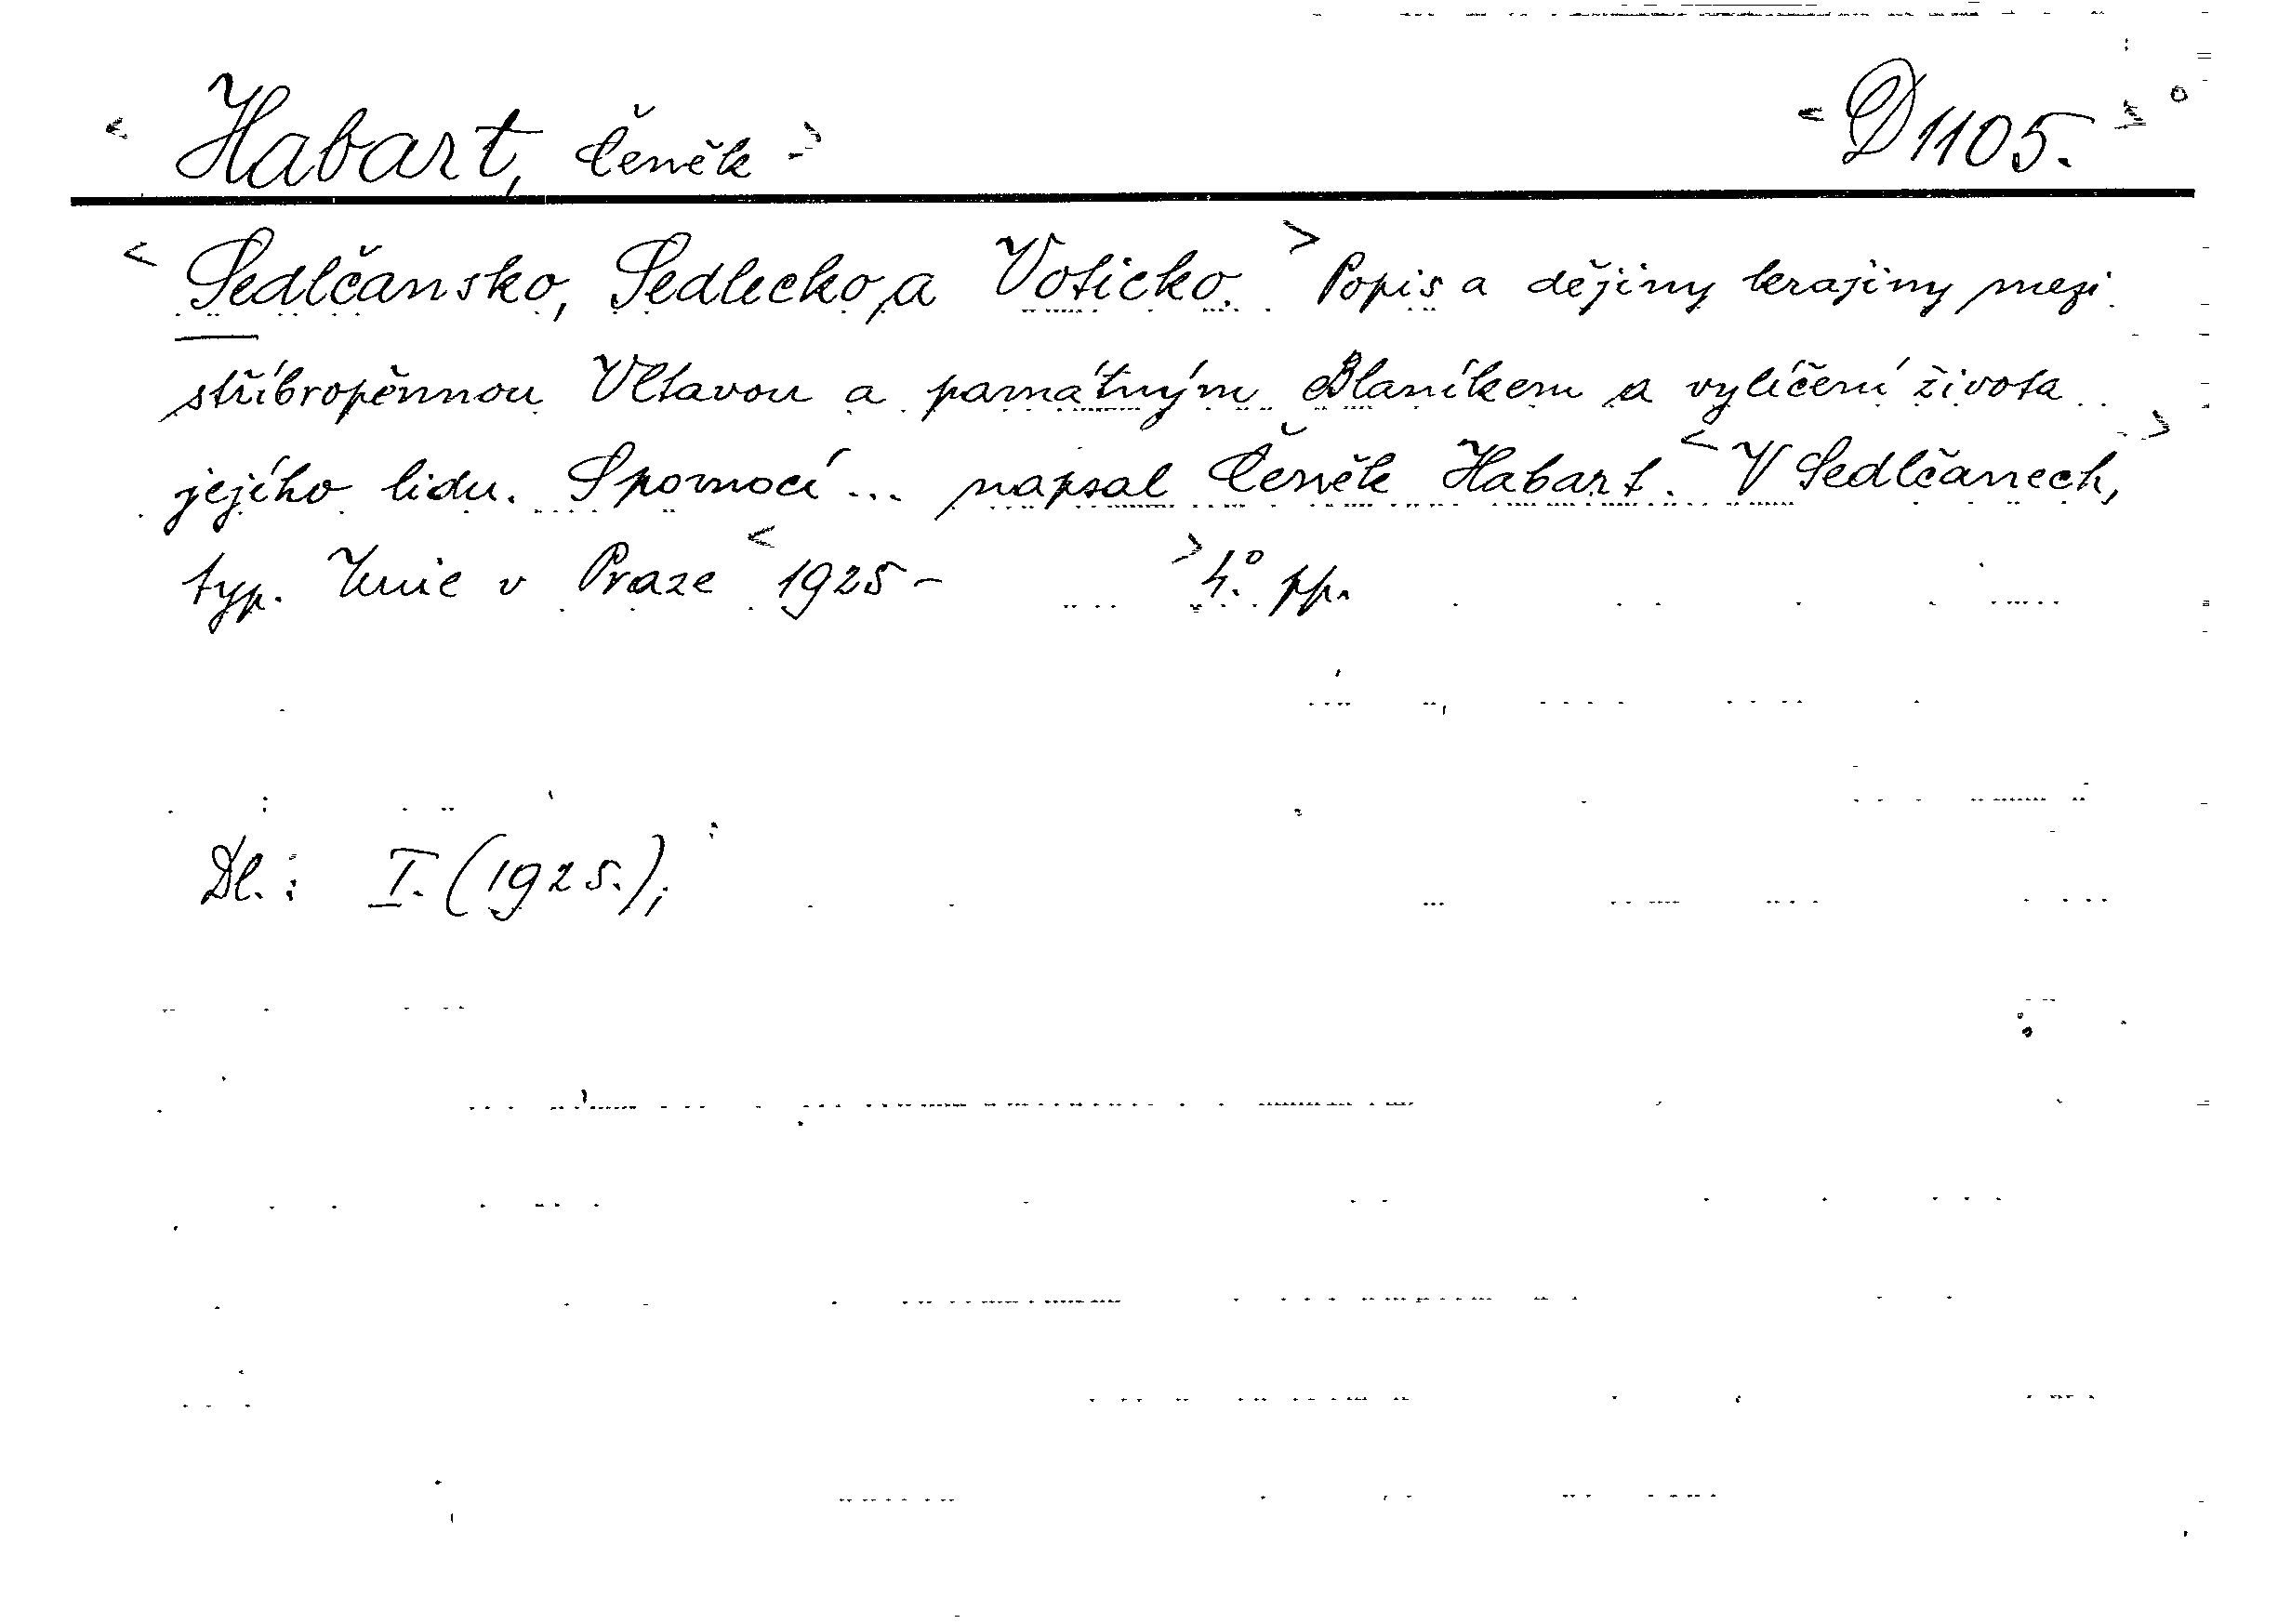 < Habart, Čeněk > < D 1105. >
< Sedlčansko, Sedlecko a Voticko. > Popis a dějiny krajiny mezi
stříbropěnnou Vltavou a památným Blaníkem a vylíčení života
jejího lidu. S pomocí ... napsal Čeněk Habart. < V Sedlčanech, >
typ. Unie v Praze < 1925 - > 4.° pp.
Dl.: I. (1925.);